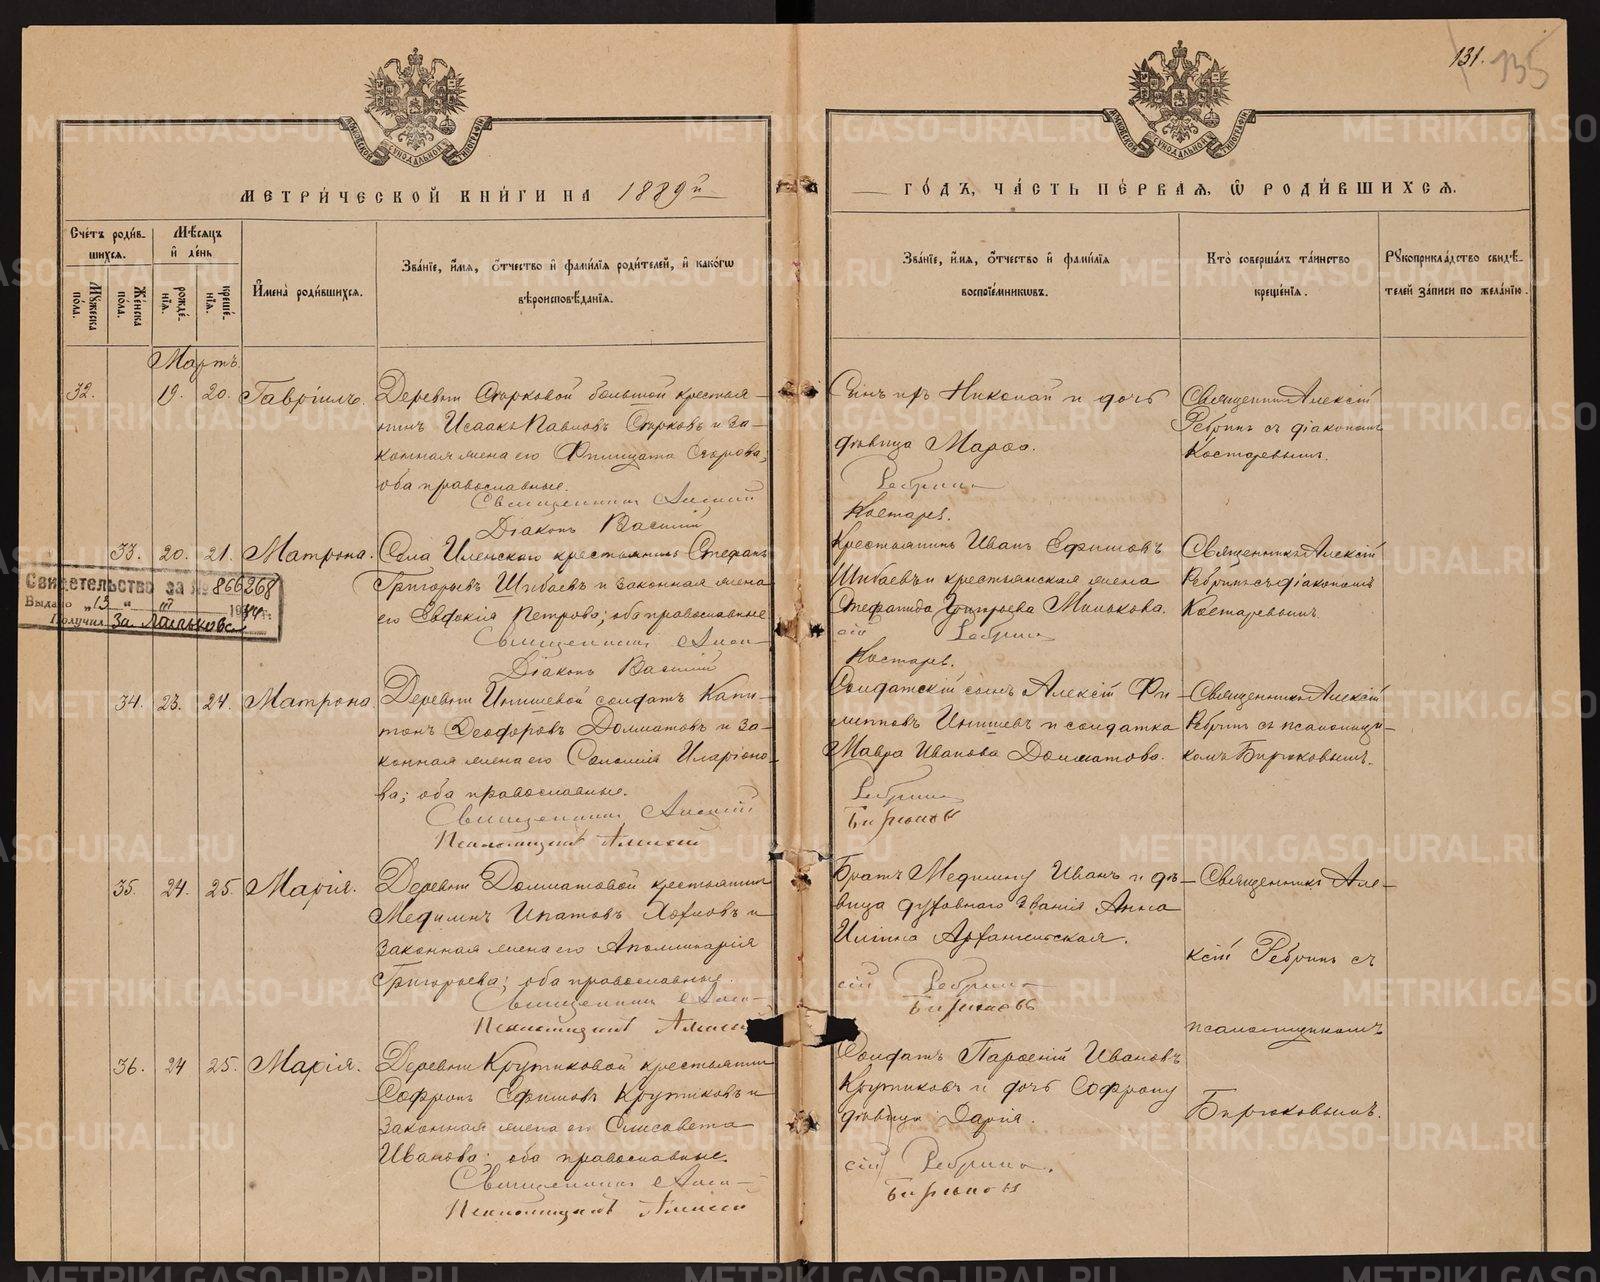 131.
135
МЕТРИ́ЧЕСКОЙ КНИ́ГИ НА 1889й
ГО́ДЪ, ЧА́СТЬ ПЕ́РВАЯ, Ѽ РОДИ́ВШИХСЯ.
Сче́тъ роди́в-
шихся.
Мꙋжеска по́ла.
Же́нска по́ла.
Мѣ́сяцъ и҆ де́нь
рожде́нїя.
креще́нїя.
И҆мена̀ роди́вшихся.
Зва́нїе, и҆́мя, ѻ҆́тчество и҆ фами́лїя роди́телей, и҆ како́гѡ
вѣроисповѣ́данїя.
Зва́нїе, и҆́мя, ѻ҆́тчество и҆ фами́лїя
воспрїе́мникѡвъ.
Кто̀ соверша́лъ та́инство
креще́нїя.
Рꙋкоприкла́дство свидѣ́-
телей за́писи по жела́нїю.
Мартъ
32. 19. 20. Гавріилъ.
Деревни Сѣрковой большой крестья-
нинъ Исаакъ Павловъ Сѣрковъ и за-
конная жена его
оба православные.
Священникъ Алексій
Діаконъ Василій
Сынъ ихъ Николай и дочь
дѣвица Марѳа.
Ребринъ
Костарев.
Священникъ Алексій
Ребринъ съ діакономъ
Костаревымъ.
33. 20. 21. Матрона.
Села Иленскаго крестьянинъ Стефанъ
Григорьевъ Шибаевъ и законная жена
его Евдокія Петрова; оба православные
Священникъ Алек-
Діаконъ Василій
Крестьянинъ Иванъ Ефимовъ
Шибаевъ и крестьянская жена
Стефанида Григорьева Милькова.
сій Ребринъ
Костарев.
Священникъ Алексій
Ребринъ съ діакономъ
Костаревымъ.
Свидетельство за № 866268
Выдано „13“ III 19
Получил За
34. 23. 24. Матрона
Деревни Инишевой солдатъ Капи-
тонъ Ѳеодоровъ Долматовъ и за-
конная жена его Соломія Иларіоно-
ва; оба православные.
Священникъ Алексій
Псаломщикъ Алексій
Солдатскій сынъ Алексій Фи-
липповъ Инишевъ и солдатка
Мавра Иванова Долматова.
Ребринъ
Бирюковъ
Священникъ Алексій
Ребринъ съ псаломщи-
комъ Бирюковымъ.
35. 24. 25. Марія.
Деревни Долматовой крестьянинъ
Ипатовъ
законная жена его Аполлинарія
Григорьева; оба православные.
Священникъ Алек-
Псаломщикъ Алексій
Братъ Иванъ и дѣ-
вица духовнаго званія Анна
Ильина Архангельская.
сій Ребринъ
Бирюковъ
Священникъ Але-
ксій Ребринъ съ
псаломщикомъ
Бирюковымъ.
36. 24 25. Марія.
Деревни Крутиковой крестьянинъ
Софронъ Ефимовъ Крутиковъ и
законная жена его Елисавета
Иванова; оба православные.
Священникъ Алек-
Псаломщикъ Алексій
Солдатъ Парѳеній Ивановъ
Крутиковъ и дочь Софрону
дѣвица Дарія.
сій Ребринъ.
Бирюковъ
METRIKI.GASO-URAL.RU